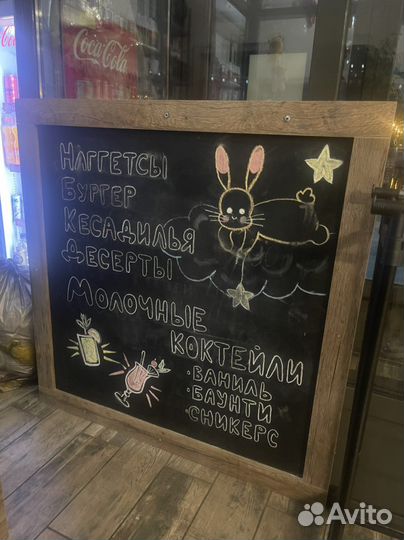 Coca-Cola
Coca-Cola
НАГГЕТСЫ
БУРГЕР
КЕСАДИЛЬЯ
ДЕСЕРТЫ
МОЛОЧНЫЕ
КОКТЕЙЛИ
·ВАНИЛЬ
·БАУНТИ
·СНИКЕРС
Avito